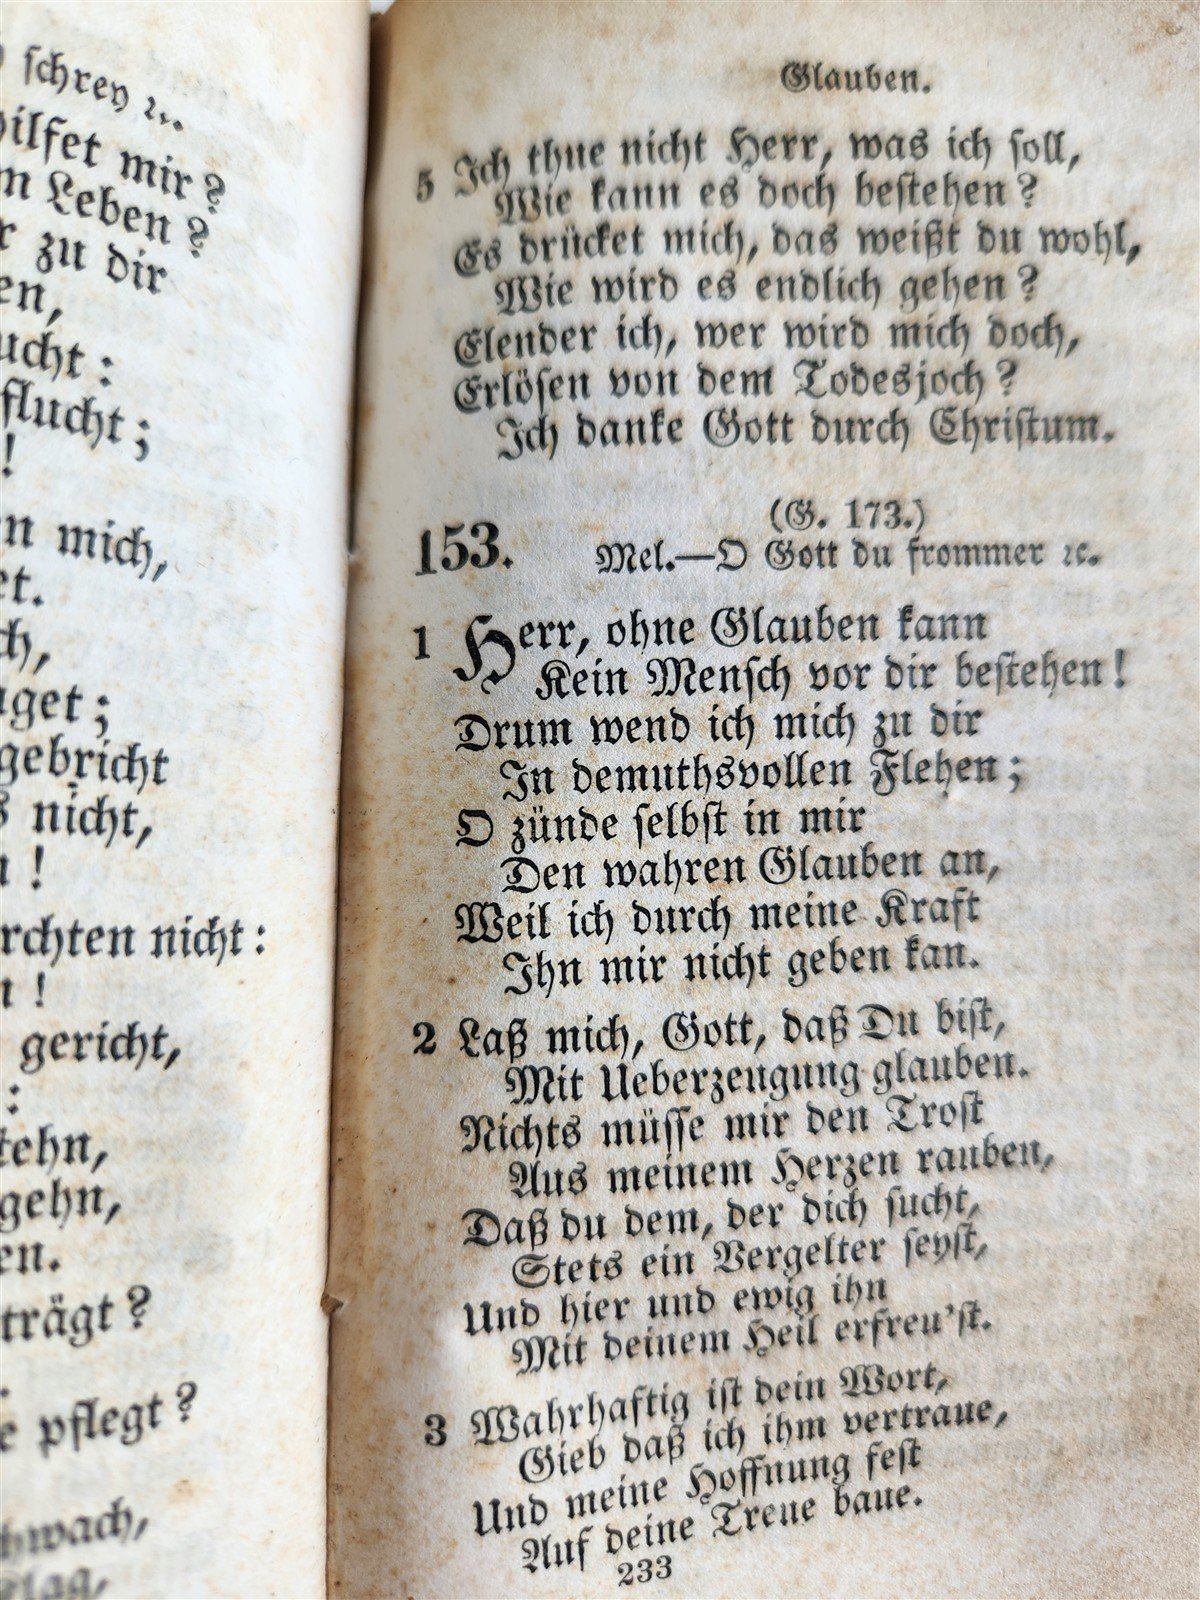 schrey ꝛc.
hilfet mir?
Leben?
zu dir
en,
ucht:
flucht;
!
mich,
et.
ch,
aget;
gebricht
nicht,
!
rchten nicht:
!
gericht,
:
tehn,
gehn,
en.
trägt?
pflegt?
hwach,
lag,
Glauben.
5 Ich thue nicht Herr, was ich soll,
Wie kann es doch bestehen?
Es drücket mich, das weißt du wohl,
Wie wird es endlich gehen?
Elender ich, wer wird mich doch,
Erlösen von dem Todesjoch?
Ich danke Gott durch Christum.
(G. 173.)
153. Mel.—O Gott du frommer ꝛc.
1 Herr, ohne Glauben kann
Kein Mensch vor dir bestehen!
Drum wend ich mich zu dir
In demuthsvollen Flehen;
O zünde selbst in mir
Den wahren Glauben an,
Weil ich durch meine Kraft
Ihn mir nicht geben kan.
2 Laß mich, Gott, daß Du bist,
Mit Ueberzeugung glauben.
Nichts müsse mir den Trost
Aus meinem Herzen rauben,
Daß du dem, der dich sucht,
Stets ein Vergelter seyst,
Und hier und ewig ihn
Mit deinem Heil erfreu'st.
3 Wahrhaftig ist dein Wort,
Gieb daß ich ihm vertraue,
Und meine Hoffnung fest
Auf deine Treue baue.
233